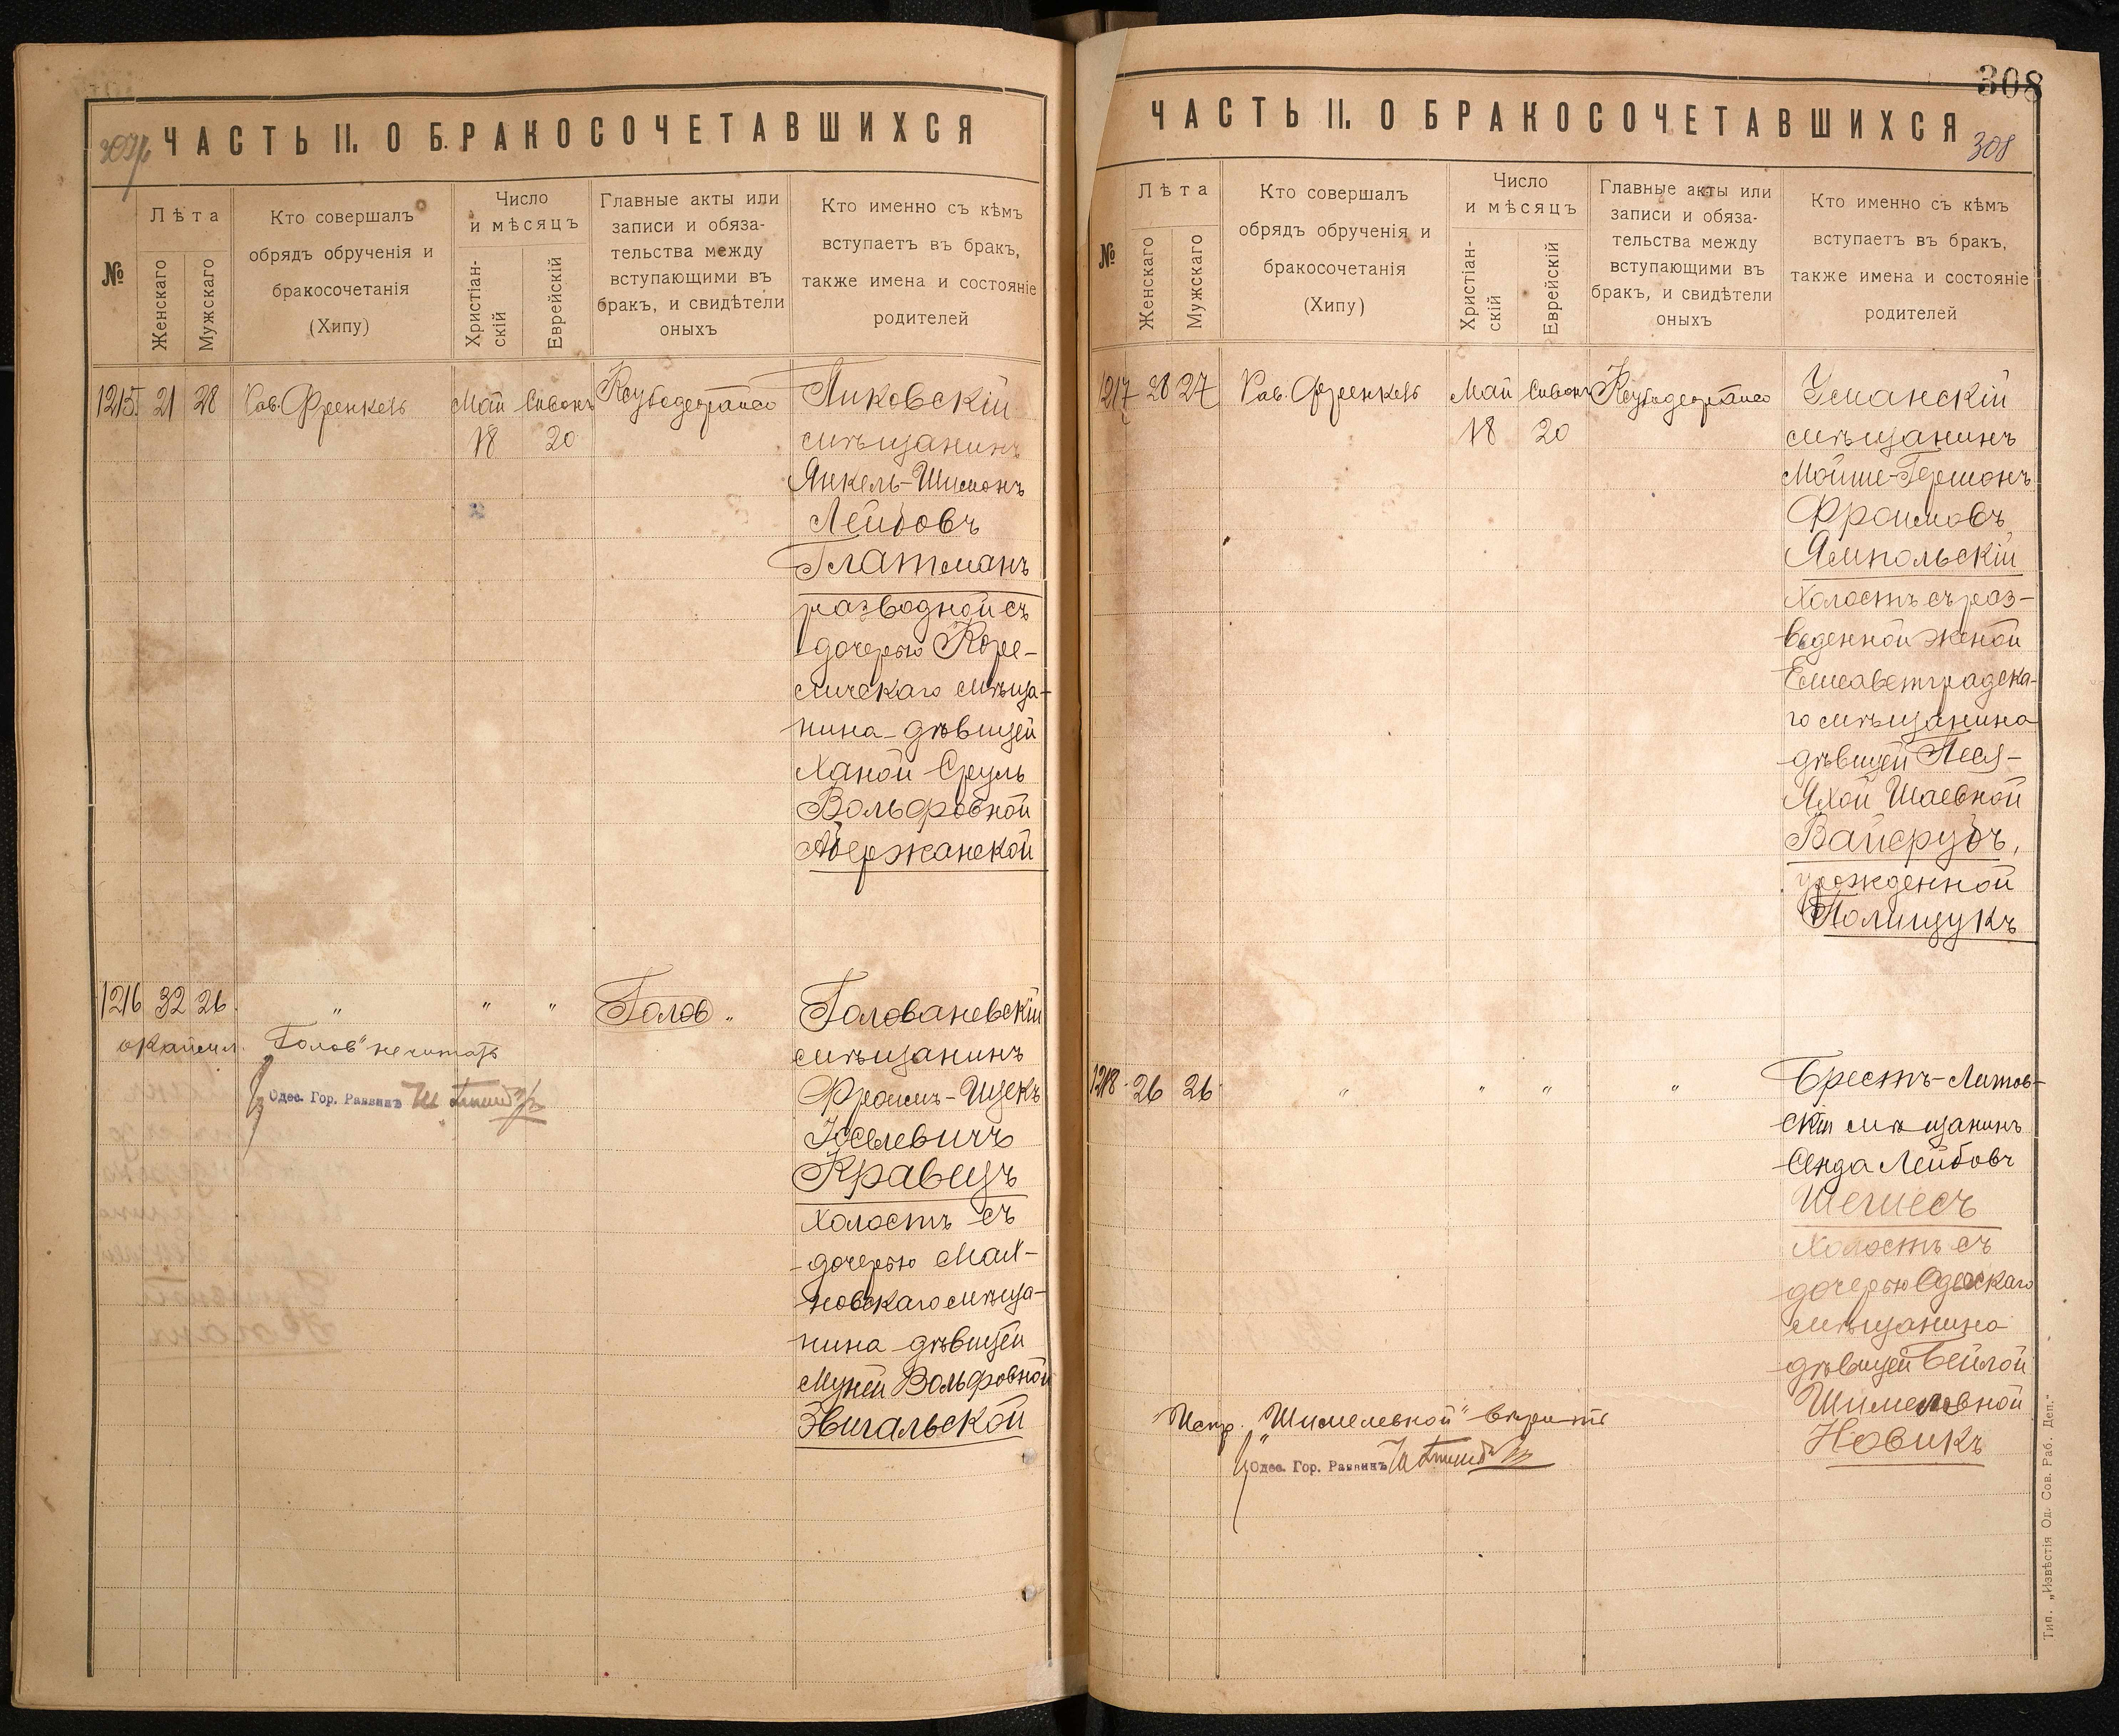 307/об
ЧАСТЬ II. О БРАКОСОЧЕТАВШИХСЯ
№
Лѣта
Женскаго
Мужскаго
Кто совершалъ
обрядъ обрученія и
бракосочетанія
(Хипу)
Число
и мѣсяцъ
Христіан-
скій
Еврейскій
Главные акты или
записи и обяза-
тельства между
вступающими въ
бракъ, и свидѣтели
оныхъ
Кто именно съ кѣмъ
вступаетъ въ бракъ,
также имена и состояніе
родителей
1215 21 28 Рав. Френкель Май Сивонъ Янковскій
18 20 мѣщанинъ
Янкель-Шимонъ
Лейбовъ
Глатманъ
разводной съ
дочерью Коре-
личскаго мѣща-
нина дѣвицей
Ханой Сруль
Вольфовной
Абержанской
1216 32 26 " " " Голов " Голованевскій
"Голов" не читать
мѣщанинъ
Фроимъ-Ицекъ
Іоселевичъ
Кравецъ
холостъ съ
дочерью Мал-
новскаго мѣща-
нина дѣвицей
Муней Вольфовной
Звигальской
Одес. Гор. Раввинъ
308
ЧАСТЬ II. О БРАКОСОЧЕТАВШИХСЯ
308
№
Лѣта
Женскаго
Мужскаго
Кто совершалъ
обрядъ обрученія и
бракосочетанія
(Хипу)
Число
и мѣсяцъ
Христіан-
скій
Еврейскій
Главные акты или
записи и обяза-
тельства между
вступающими въ
бракъ, и свидѣтели
оныхъ
Кто именно съ кѣмъ
вступаетъ въ бракъ,
также имена и состояніе
родителей
1217 28 27 Рав. Френкель Май Сивонъ Уманскій
18 20 мѣщанинъ
Мойше-Гершонъ
Фроимовъ
Ямпольскій
холостъ съ раз-
веденной женой
Елисаветградска-
го мѣщанина
дѣвицей Песя-
Яхой Шаевной
Вайсрубъ,
урожденной
Полищукъ
1218 26 26 " " " " Брестъ-Литов-
скій мѣщанинъ
Сенда Лейбовъ
Шегиесъ
холостъ съ
дочерью Одесскаго
мѣщанина
дѣвицей Бейлой
Шимелевной
Новикъ
Испр. "Шимелевной" вѣрить
Одес. Гор. Раввинъ
Тип. „Извѣстія Од. Сов. Раб. Деп."